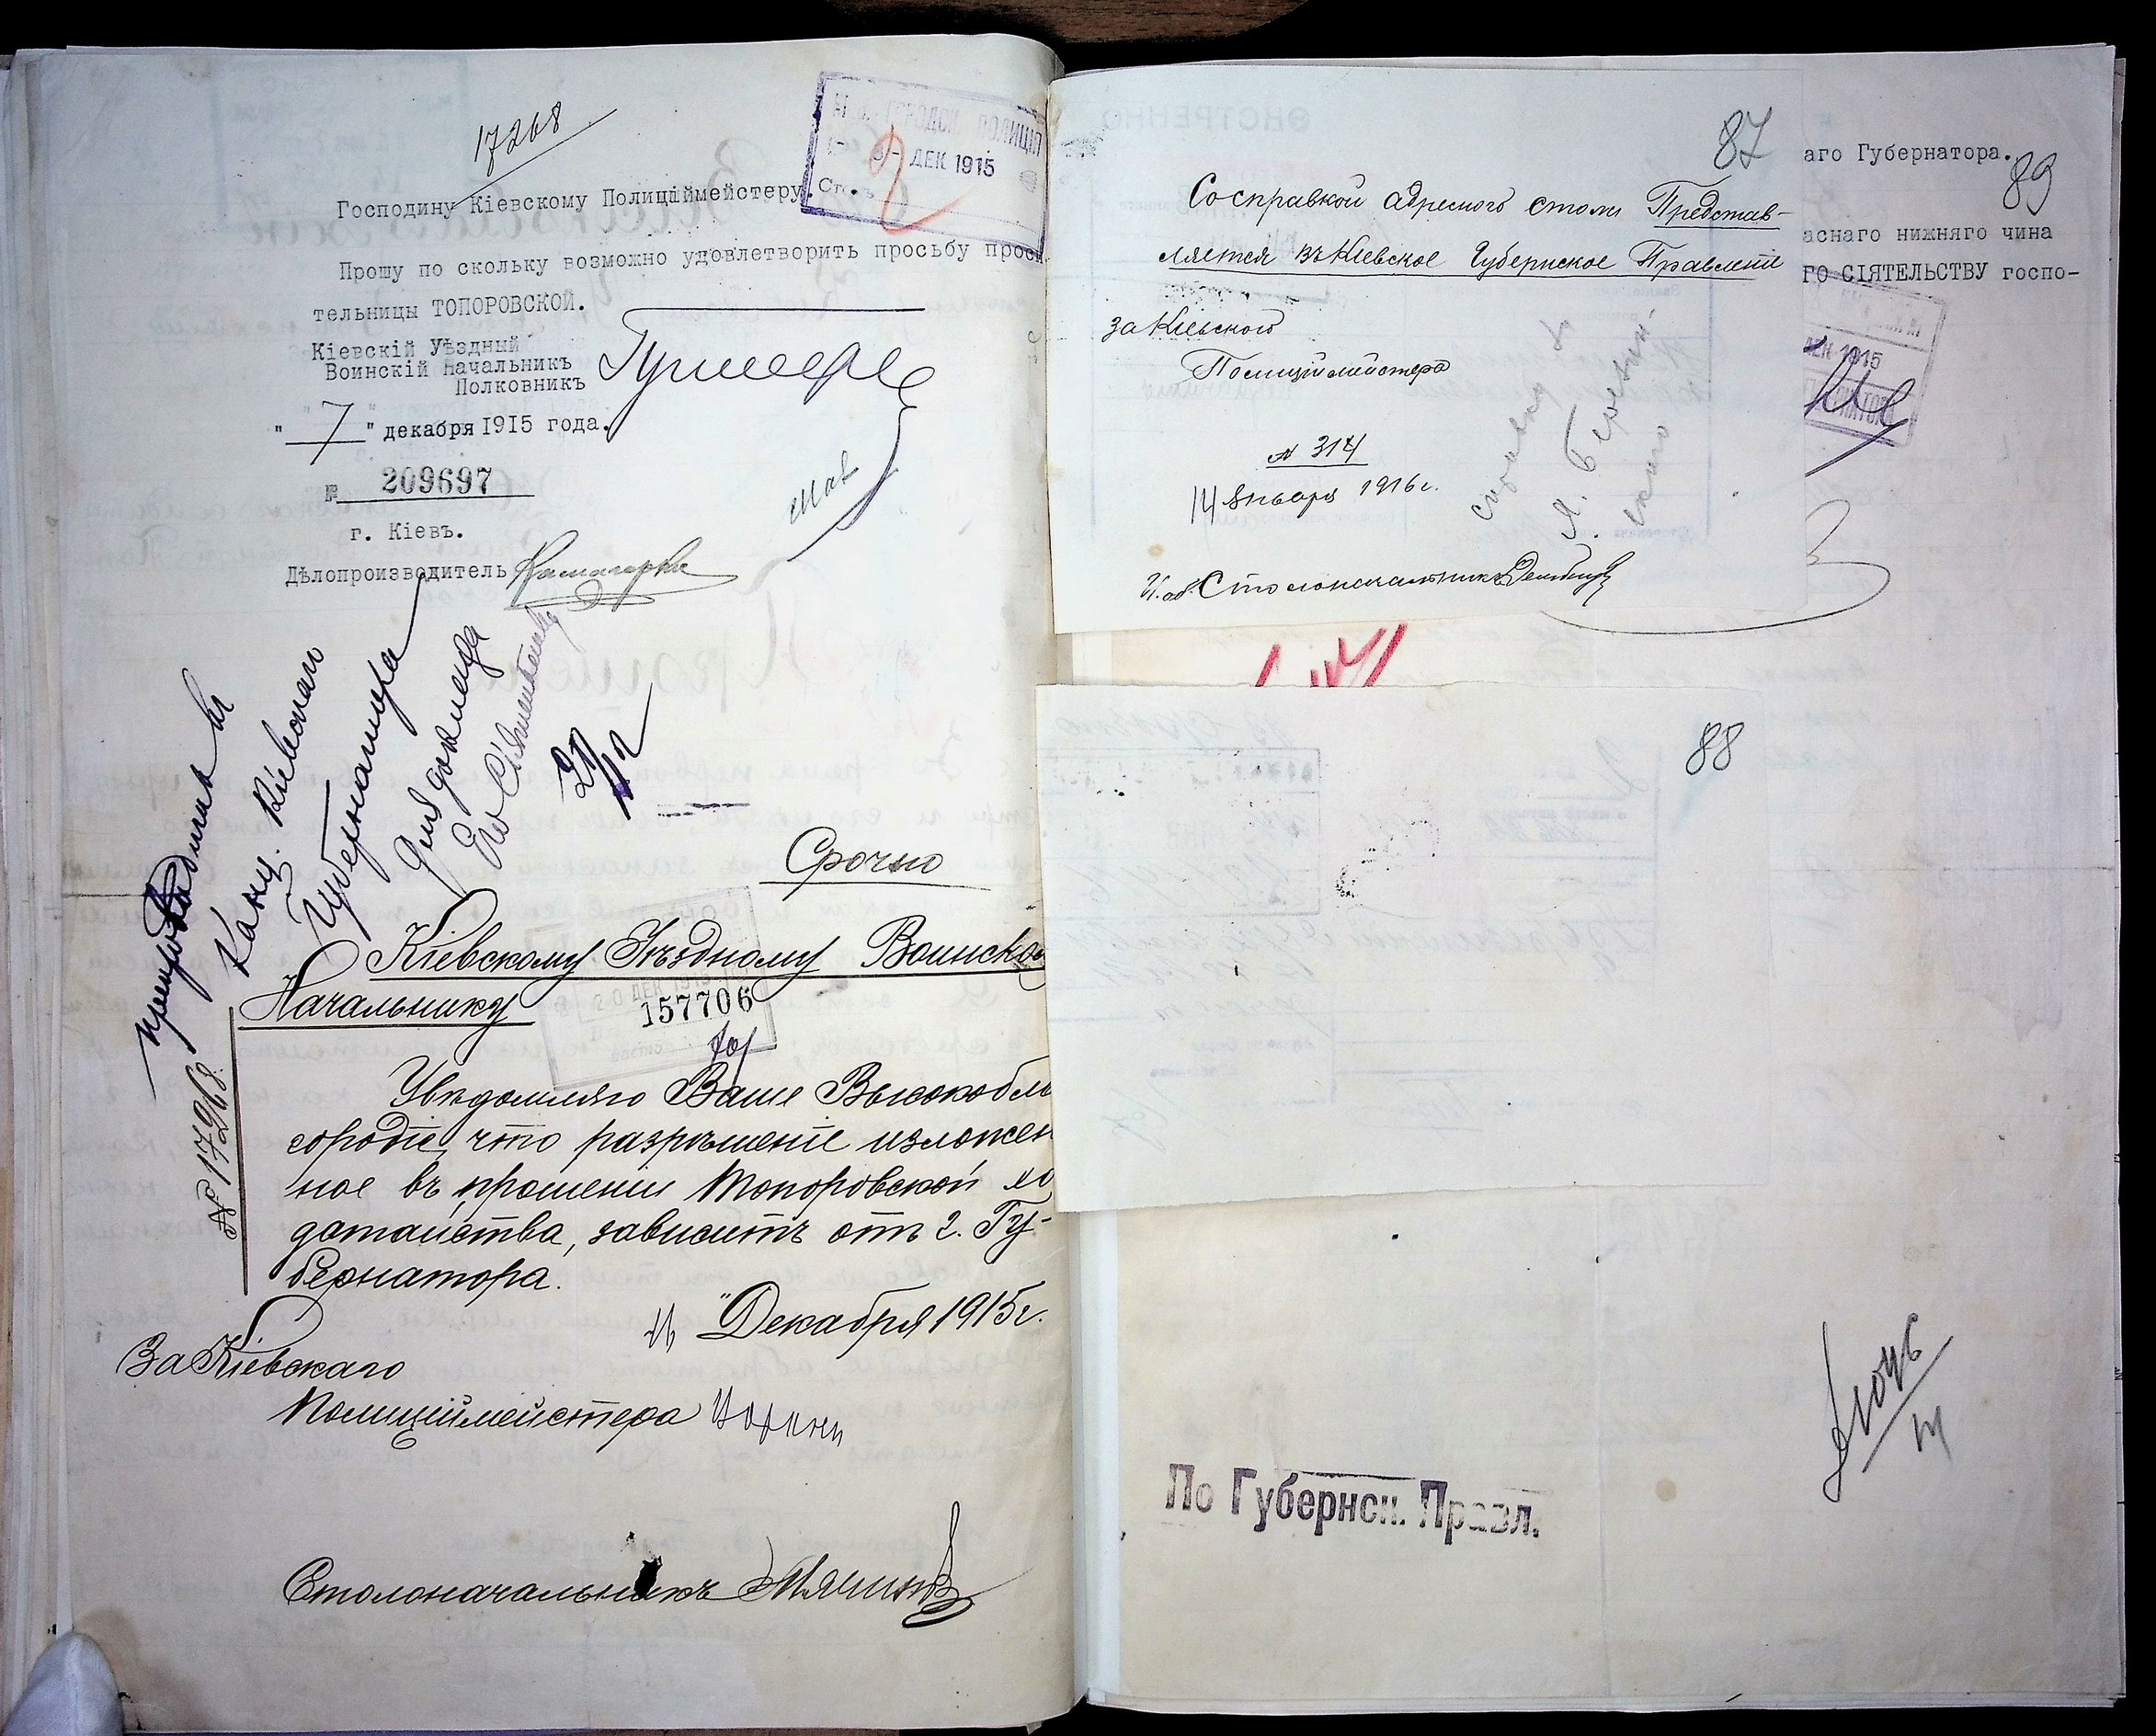 17268
ДЕК 1915
Господину Кіевскому Полиціймейстеру.
Прошу по скольку возможно удовлетворить просьбу прос
тельницы ТОПОРОВСКОЙ.
Кіевскій Уѣздный
Воинскій Начальникъ
Полковникъ
" 7 " декабря 1915 года.
№ 209697
г. Кіевъ.
Дѣлопроизводитель
Канц. Кіевскаго
Губернатора
для доклада
Его Сіятельству
Срочно
Кіевскому Уѣздному Воинско
Начальнику
20 ДЕК 1915
157706
№ 17268
Увѣдомляю Ваше Высокобла
городіе, что разрѣшеніе изложен
ное въ прошеніи Топоровской хо
датайства, зависитъ отъ г. Гу-
бернатора.
" Декабря 1915 г.
За Кіевскаго
Полиціймейстера
Столоначальникъ
87
Со справкой адреснаго стола Представ-
ляется въ Кіевское Губернское Правленіе
за Кіевскаго
Полиціймейстера
№ 314
14 Января 1916 г.
И. об. Столоначальника
аго Губернатора.
89
аснаго нижняго чина
ГО СІЯТЕЛЬСТВУ госпо-
ДЕК 1915
88
По Губернск. Правл.